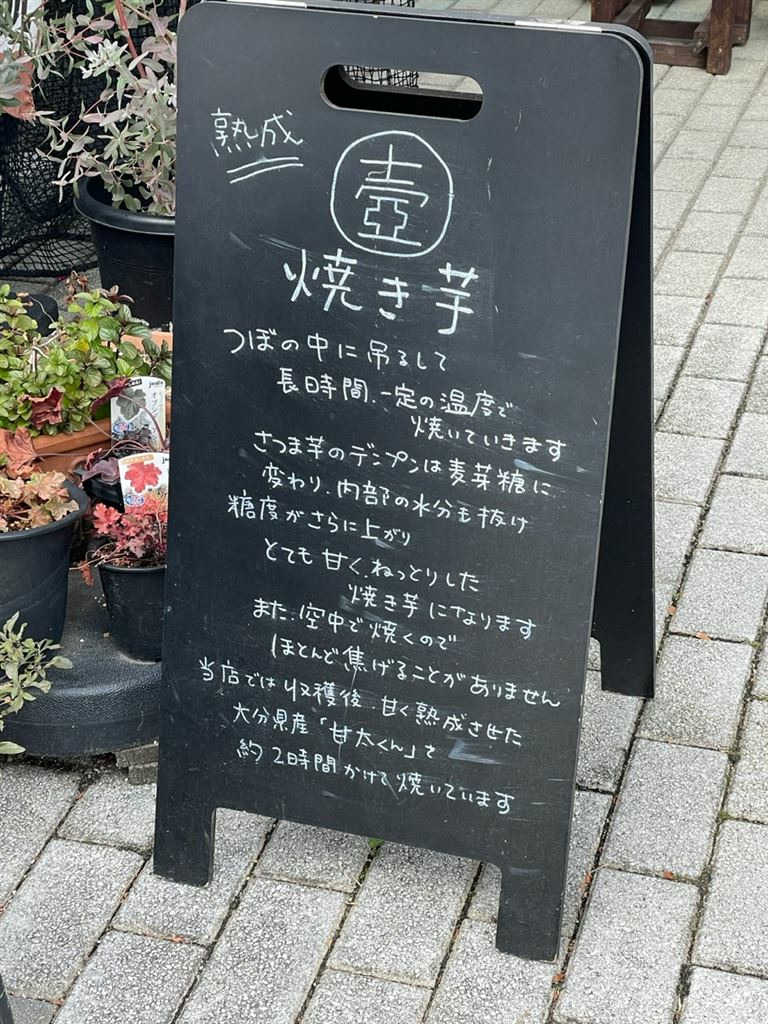 熟成
壺
焼き芋
つぼの中に吊るして
長時間、一定の温度で
焼いていきます
さつま芋のデンプンは麦芽糖に
変わり、内部の水分も抜け
糖度がさらに上がり
とても甘く、ねっとりした
焼き芋になります
また、空中で焼くので
ほとんど焦げることがありません
当店では収穫後、甘く熟成させた
大分県産「甘太くん」を
約2時間かけて焼いています